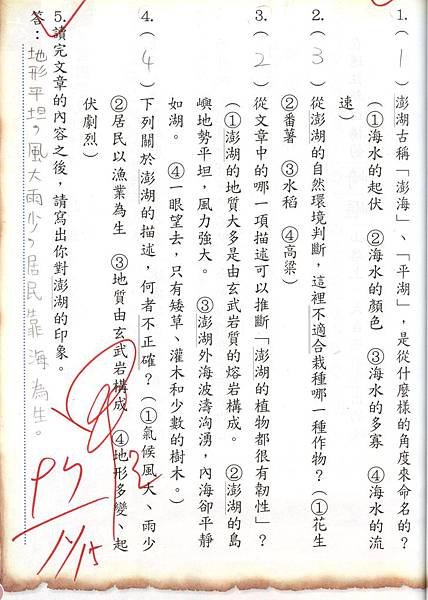 1.（1）澎湖古稱「澎海」、「平湖」，是從什麼樣的角度來命名的？
（①海水的起伏　②海水的顏色　③海水的多寡　④海水的流
速）
2.（3）從澎湖的自然環境判斷，這裡不適合栽種哪一種作物？（①花生
②番薯　③水稻　④高粱）
3.（2）從文章中的哪一項描述可以推斷「澎湖的植物都很有韌性」？
（①澎湖的地質大多是由玄武岩質的熔岩構成。　②澎湖的島
嶼地勢平坦，風力強大。　③澎湖外海波濤洶湧，內海卻平靜
如湖。　④一眼望去，只有矮草、灌木和少數的樹木。）
4.（4）下列關於澎湖的描述，何者不正確？（①氣候風大、雨少
②居民以漁業為生　③地質由玄武岩構成　④地形多變、起
伏劇烈）
5.讀完文章的內容之後，請寫出你對澎湖的印象。
答：地形平坦，風大雨少，居民靠海為生。